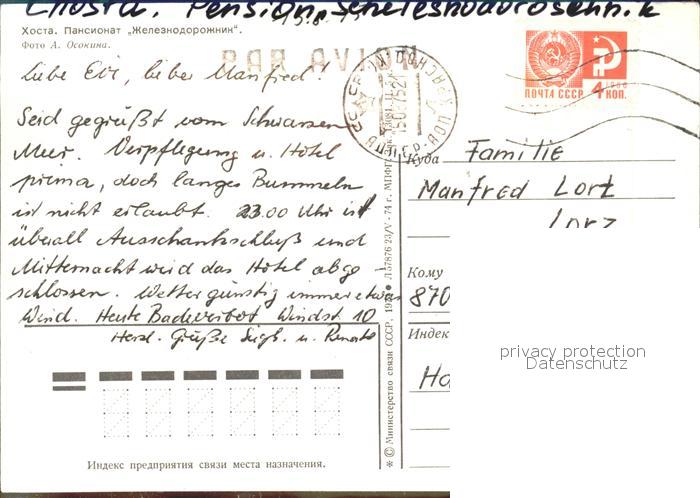 Chosta. Pension „Scheleshodoroschnik
15.8.75
Хоста. Пансионат „Железнодорожник".
Фото А. Осокина.
PAR AVION
Liebe Evi, lieber Manfred!
Seid gegrüßt vom Schwarzen
Meer. Verpflegung u. Hotel
prima, doch langes Bummeln
ist nicht erlaubt. 23.00 Uhr ist
überall Ausschankschluß und
Mitternacht wird das Hotel abge-
schlossen. Wetter günstig immer etwas
Wind. Heute Badeverbot Windst. 10
Herzl. Grüße Siegb. u. Renate
Индекс предприятия связи места назначения.
* © Министерство связи СССР, 1974 • Л 57876 23/V - 74 г.
ПОЧТА СССР 4 КОП.
1966
Куда Familie
Manfred Lort
Кому
870
Индекс
Ho
privacy protection
Datenschutz